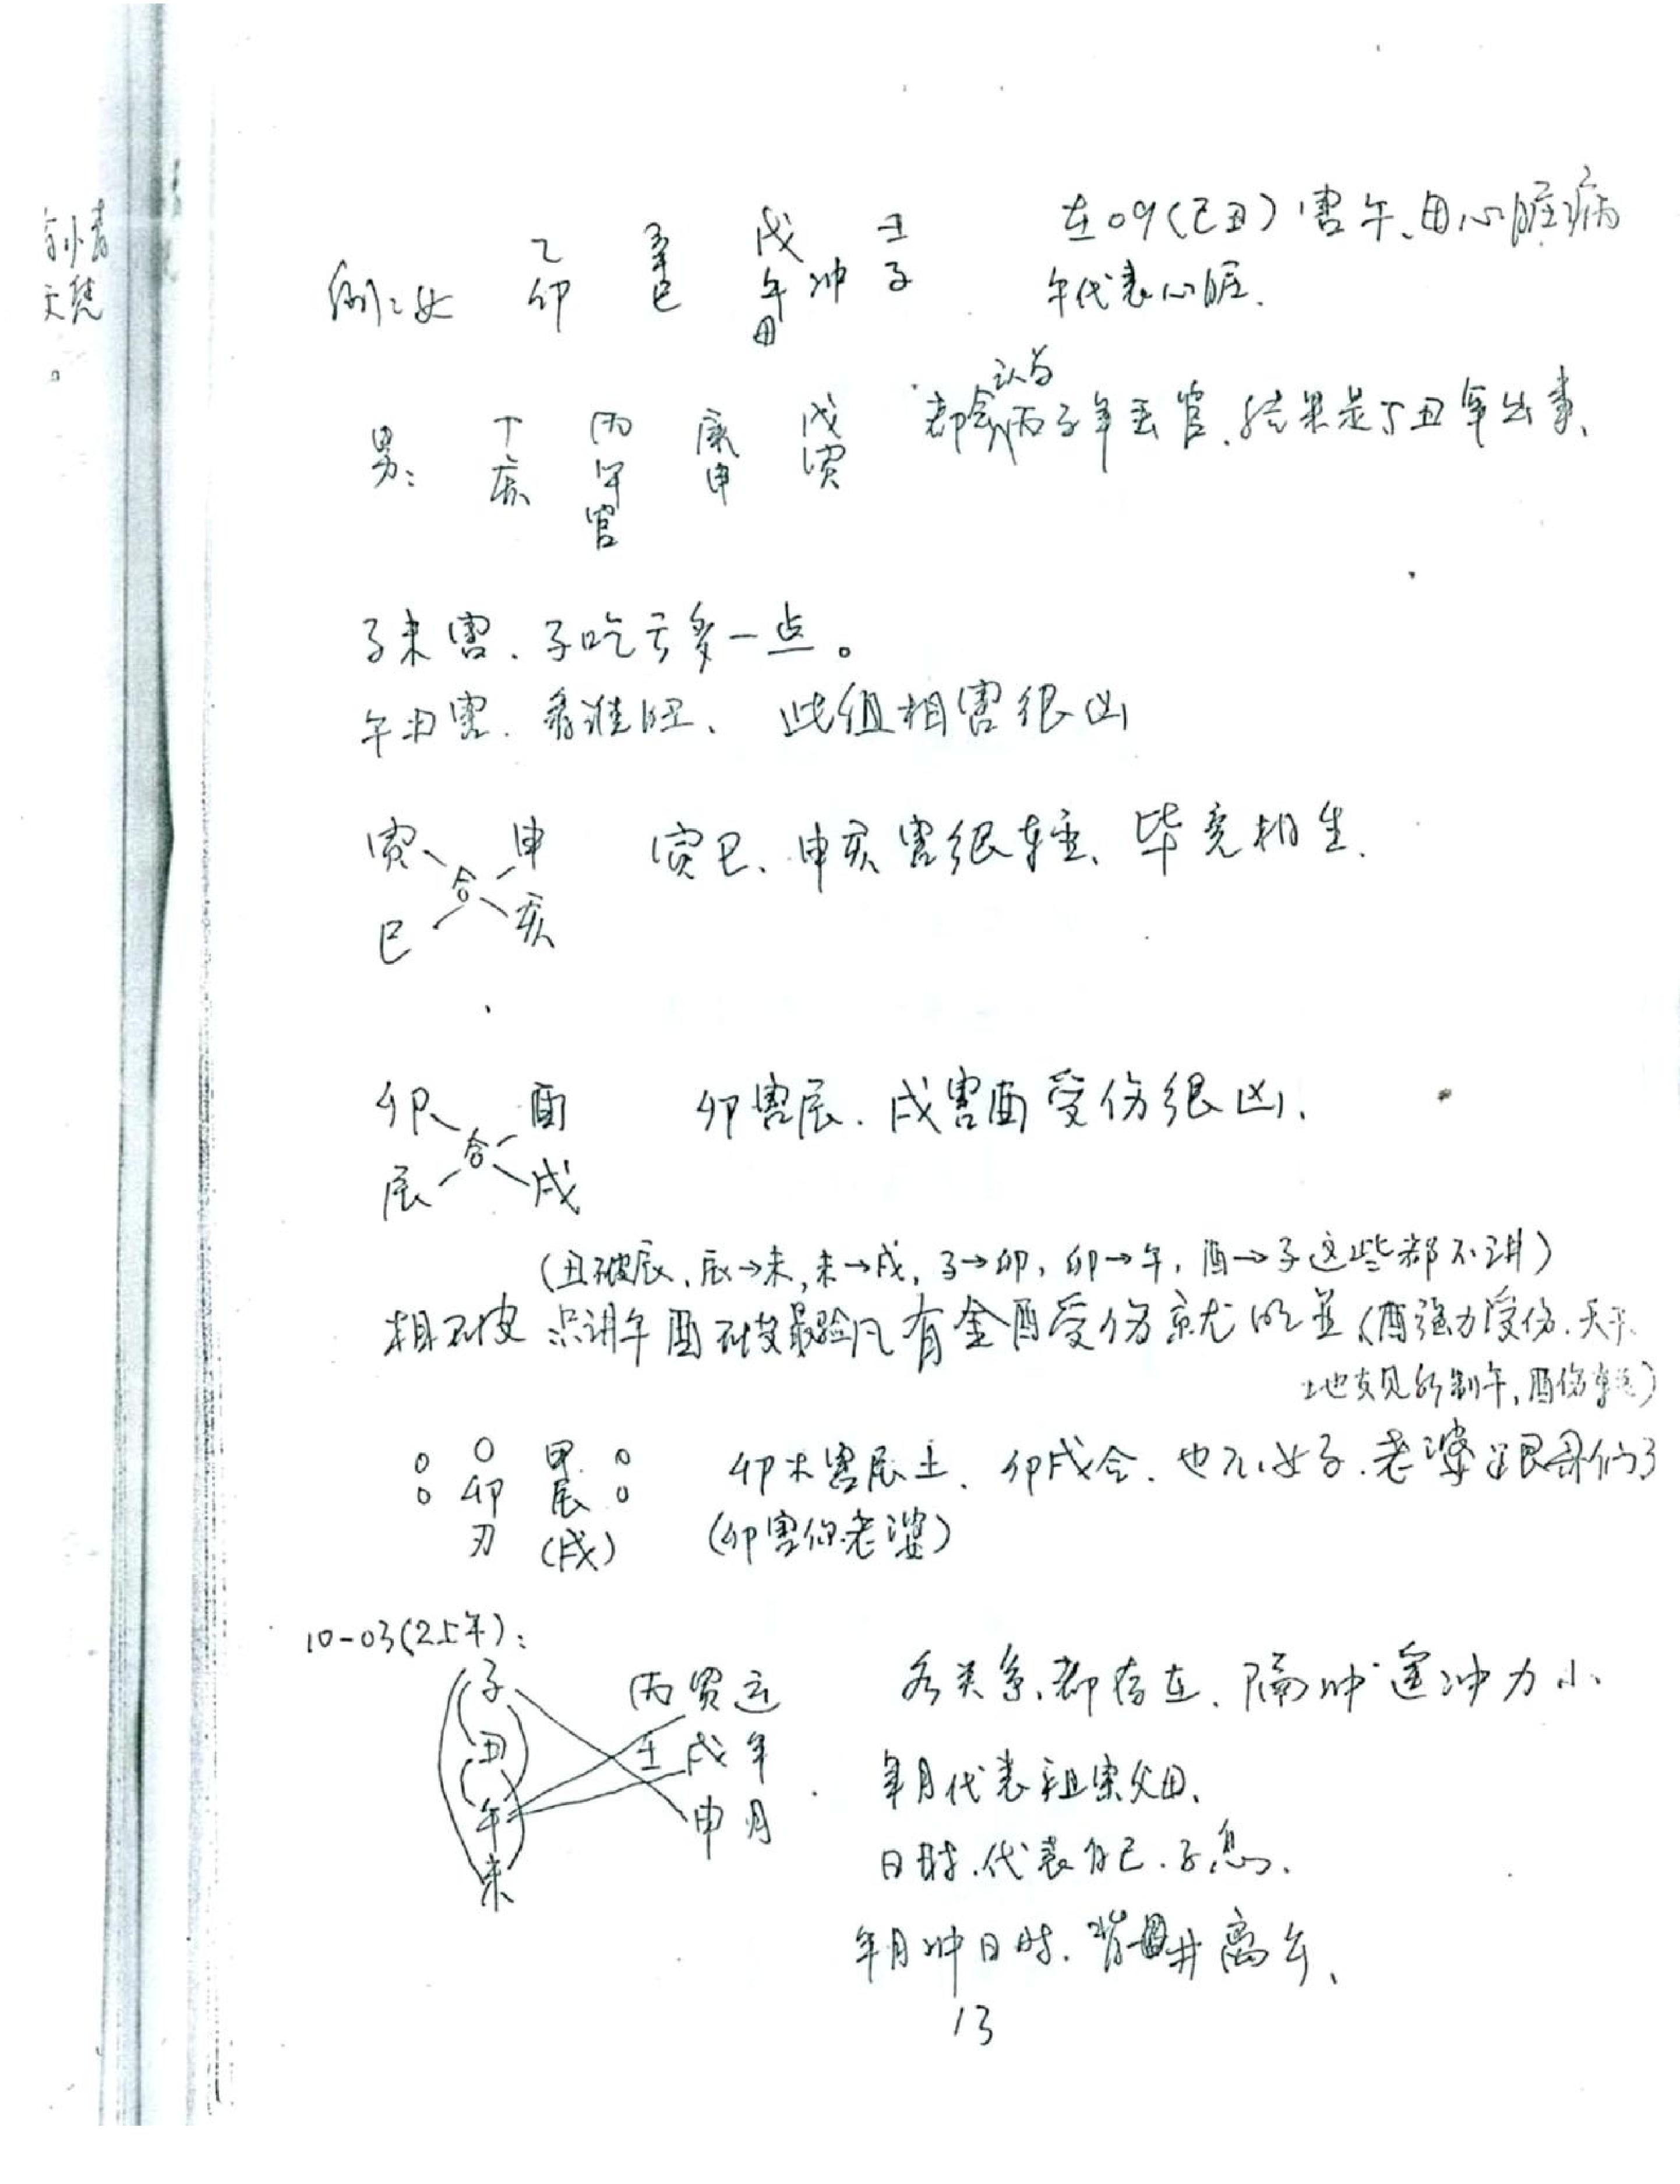 乙 辛 戊 壬 在09(己丑)害午、母心脏病
例:女 卯 巳 午冲子 午代表心脏.
母
认为
丁 丙 庚 戊 都会丙子年丢官.结果是丁丑年出事、
男: 亥 午 申 寅
官
子未害.子吃亏多一点。
午丑害.看谁旺、此组相害很凶
寅 申 寅巳、申亥害很轻、毕竟相生.
合
巳 亥
卯 酉 卯害辰.戌害酉受伤很凶.
合
辰 戌
(丑破辰、辰→未,未→戌,子→卯,卯→午,酉→子这些都不讲)
相破 只讲午酉破最验凡有金酉受伤就
地支见 制午,酉伤
0 0 甲 0 卯木害辰土.卯戌合.也 女子.老婆跟哥们了
0 卯 辰 0
刃 (戌) (卯害你老婆)
10-03(25年):
子 丙寅运 各类系都存在.隔冲遥冲力小、
丑 壬戌年 年月代表祖宗父母、
午 申月 日时.代表自己.子息.
未
年月冲日时.背井离乡、
13